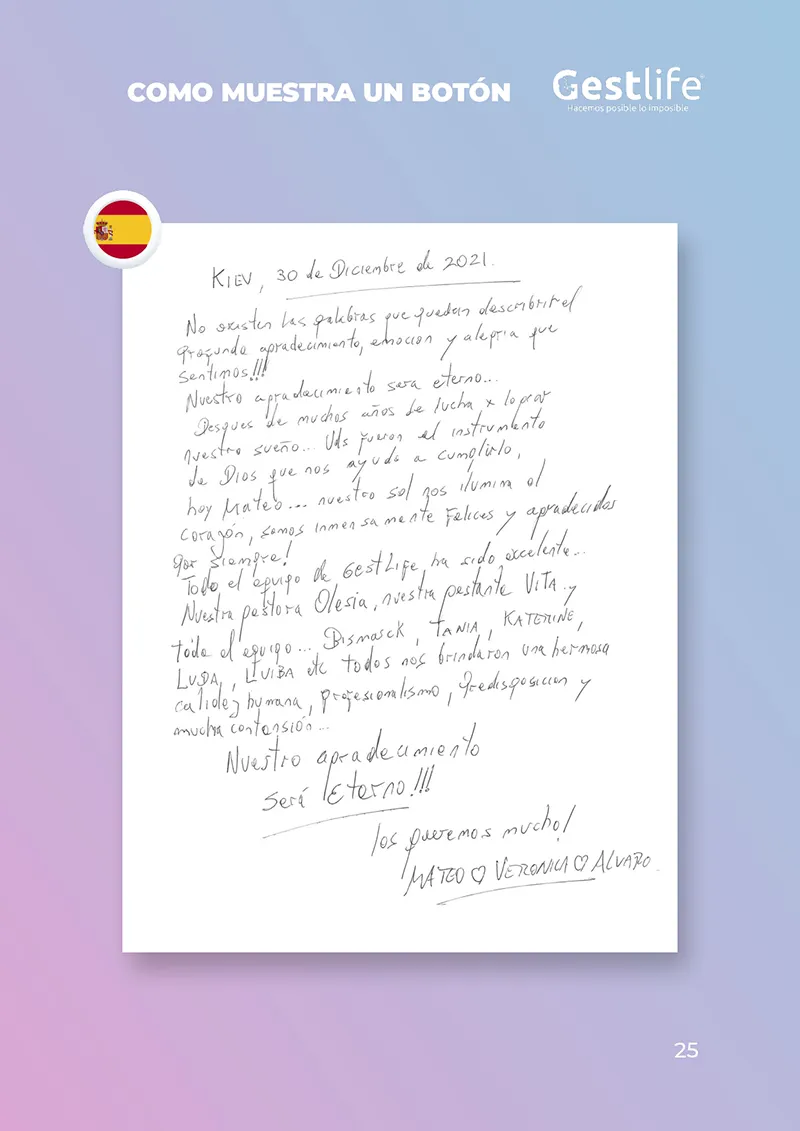 COMO MUESTRA UN BOTÓN
Gestlife
Hacemos posible lo imposible
KIEV, 30 de Diciembre de 2021.
No existen las palabras que puedan describir el
profundo agradecimiento, emocion y alegria que
sentimos!!!
Nuestro agradecimiento sera eterno...
Despues de muchos años de lucha x lograr
nuestro sueño... Uds fueron el instrumento
de Dios que nos ayudo a cumplirlo,
hoy Mateo... nuestro sol nos ilumina el
corazón, somos inmensamente Felices y agradecidos
por siempre!
Todo el equipo de GESTLIFE ha sido excelente...
Nuestra gestora Olesia, nuestra gestante VITA y
todo el equipo... Bismarck, TANIA, KATERINE,
LUDA, LIUIBA etc todos nos brindaron una hermosa
calidez humana, profesionalismo, predisposicion y
mucha contensión...
Nuestro agradecimiento
será Eterno!!!
los queremos mucho!
MATEO ♡ VERONICA ♡ ALVARO.
25